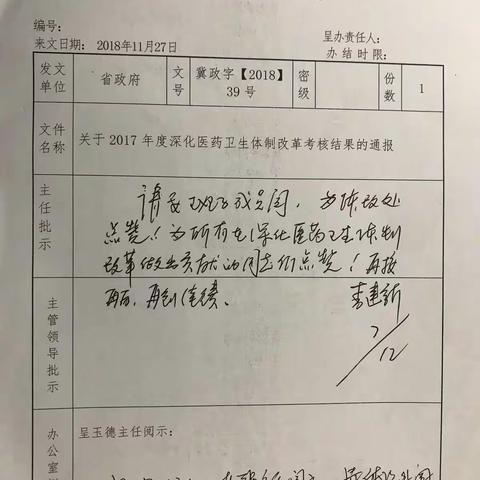 编号：
呈办责任人：
来文日期： 2018年11月27日
办 结 时 限：
发文单位 省政府 文号 冀政字【2018】39号 密级 份数 1
文件名称 关于2017年度深化医药卫生体制改革考核结果的通报
主任批示
请委班子成员阅，为体改处
点赞！为所有在深化医药卫生体制
改革做出贡献的同志们点赞！再接
再厉，再创佳绩。
李建新
7/12
主管领导批示
办公室
呈玉德主任阅示：